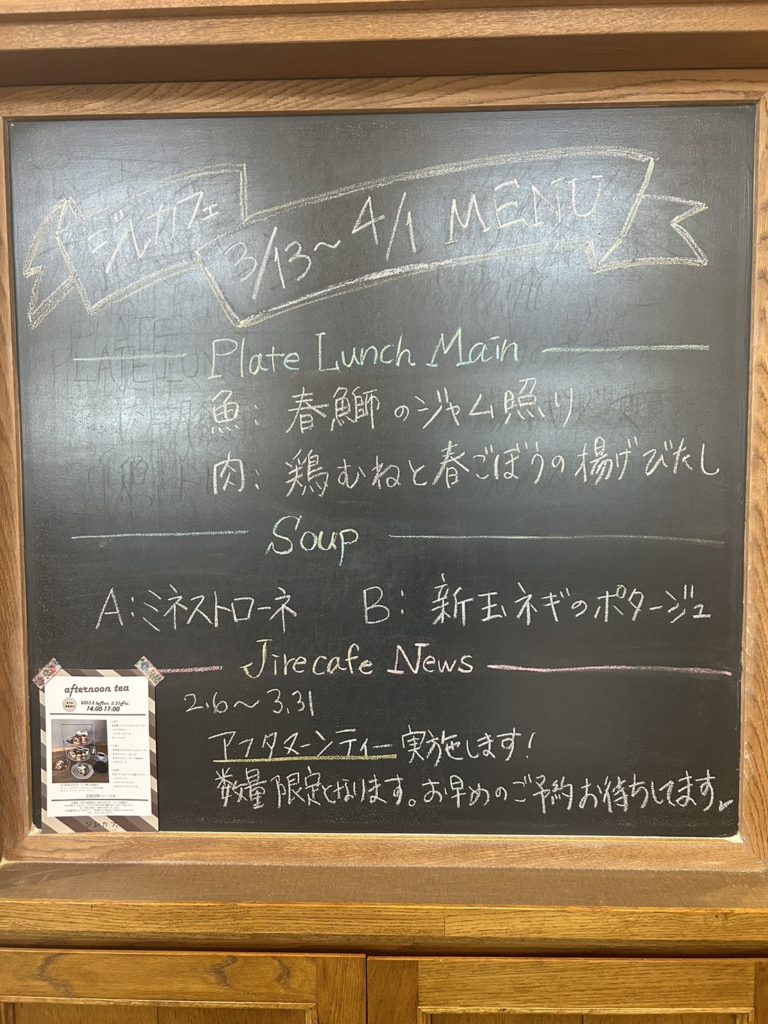 ジルカフェ
3/13〜4/1 MENU
Plate Lunch Main
魚: 春鰤のジャム照り
肉: 鶏むねと春ごぼうの揚げびたし
Soup
A:ミネストローネ B: 新玉ネギのポタージュ
Jirecafe News
2.6〜3.31
アフタヌーンティー実施します!
数量限定となります。お早めのご予約お待ちしてます。
afternoon tea
14:00-17:00